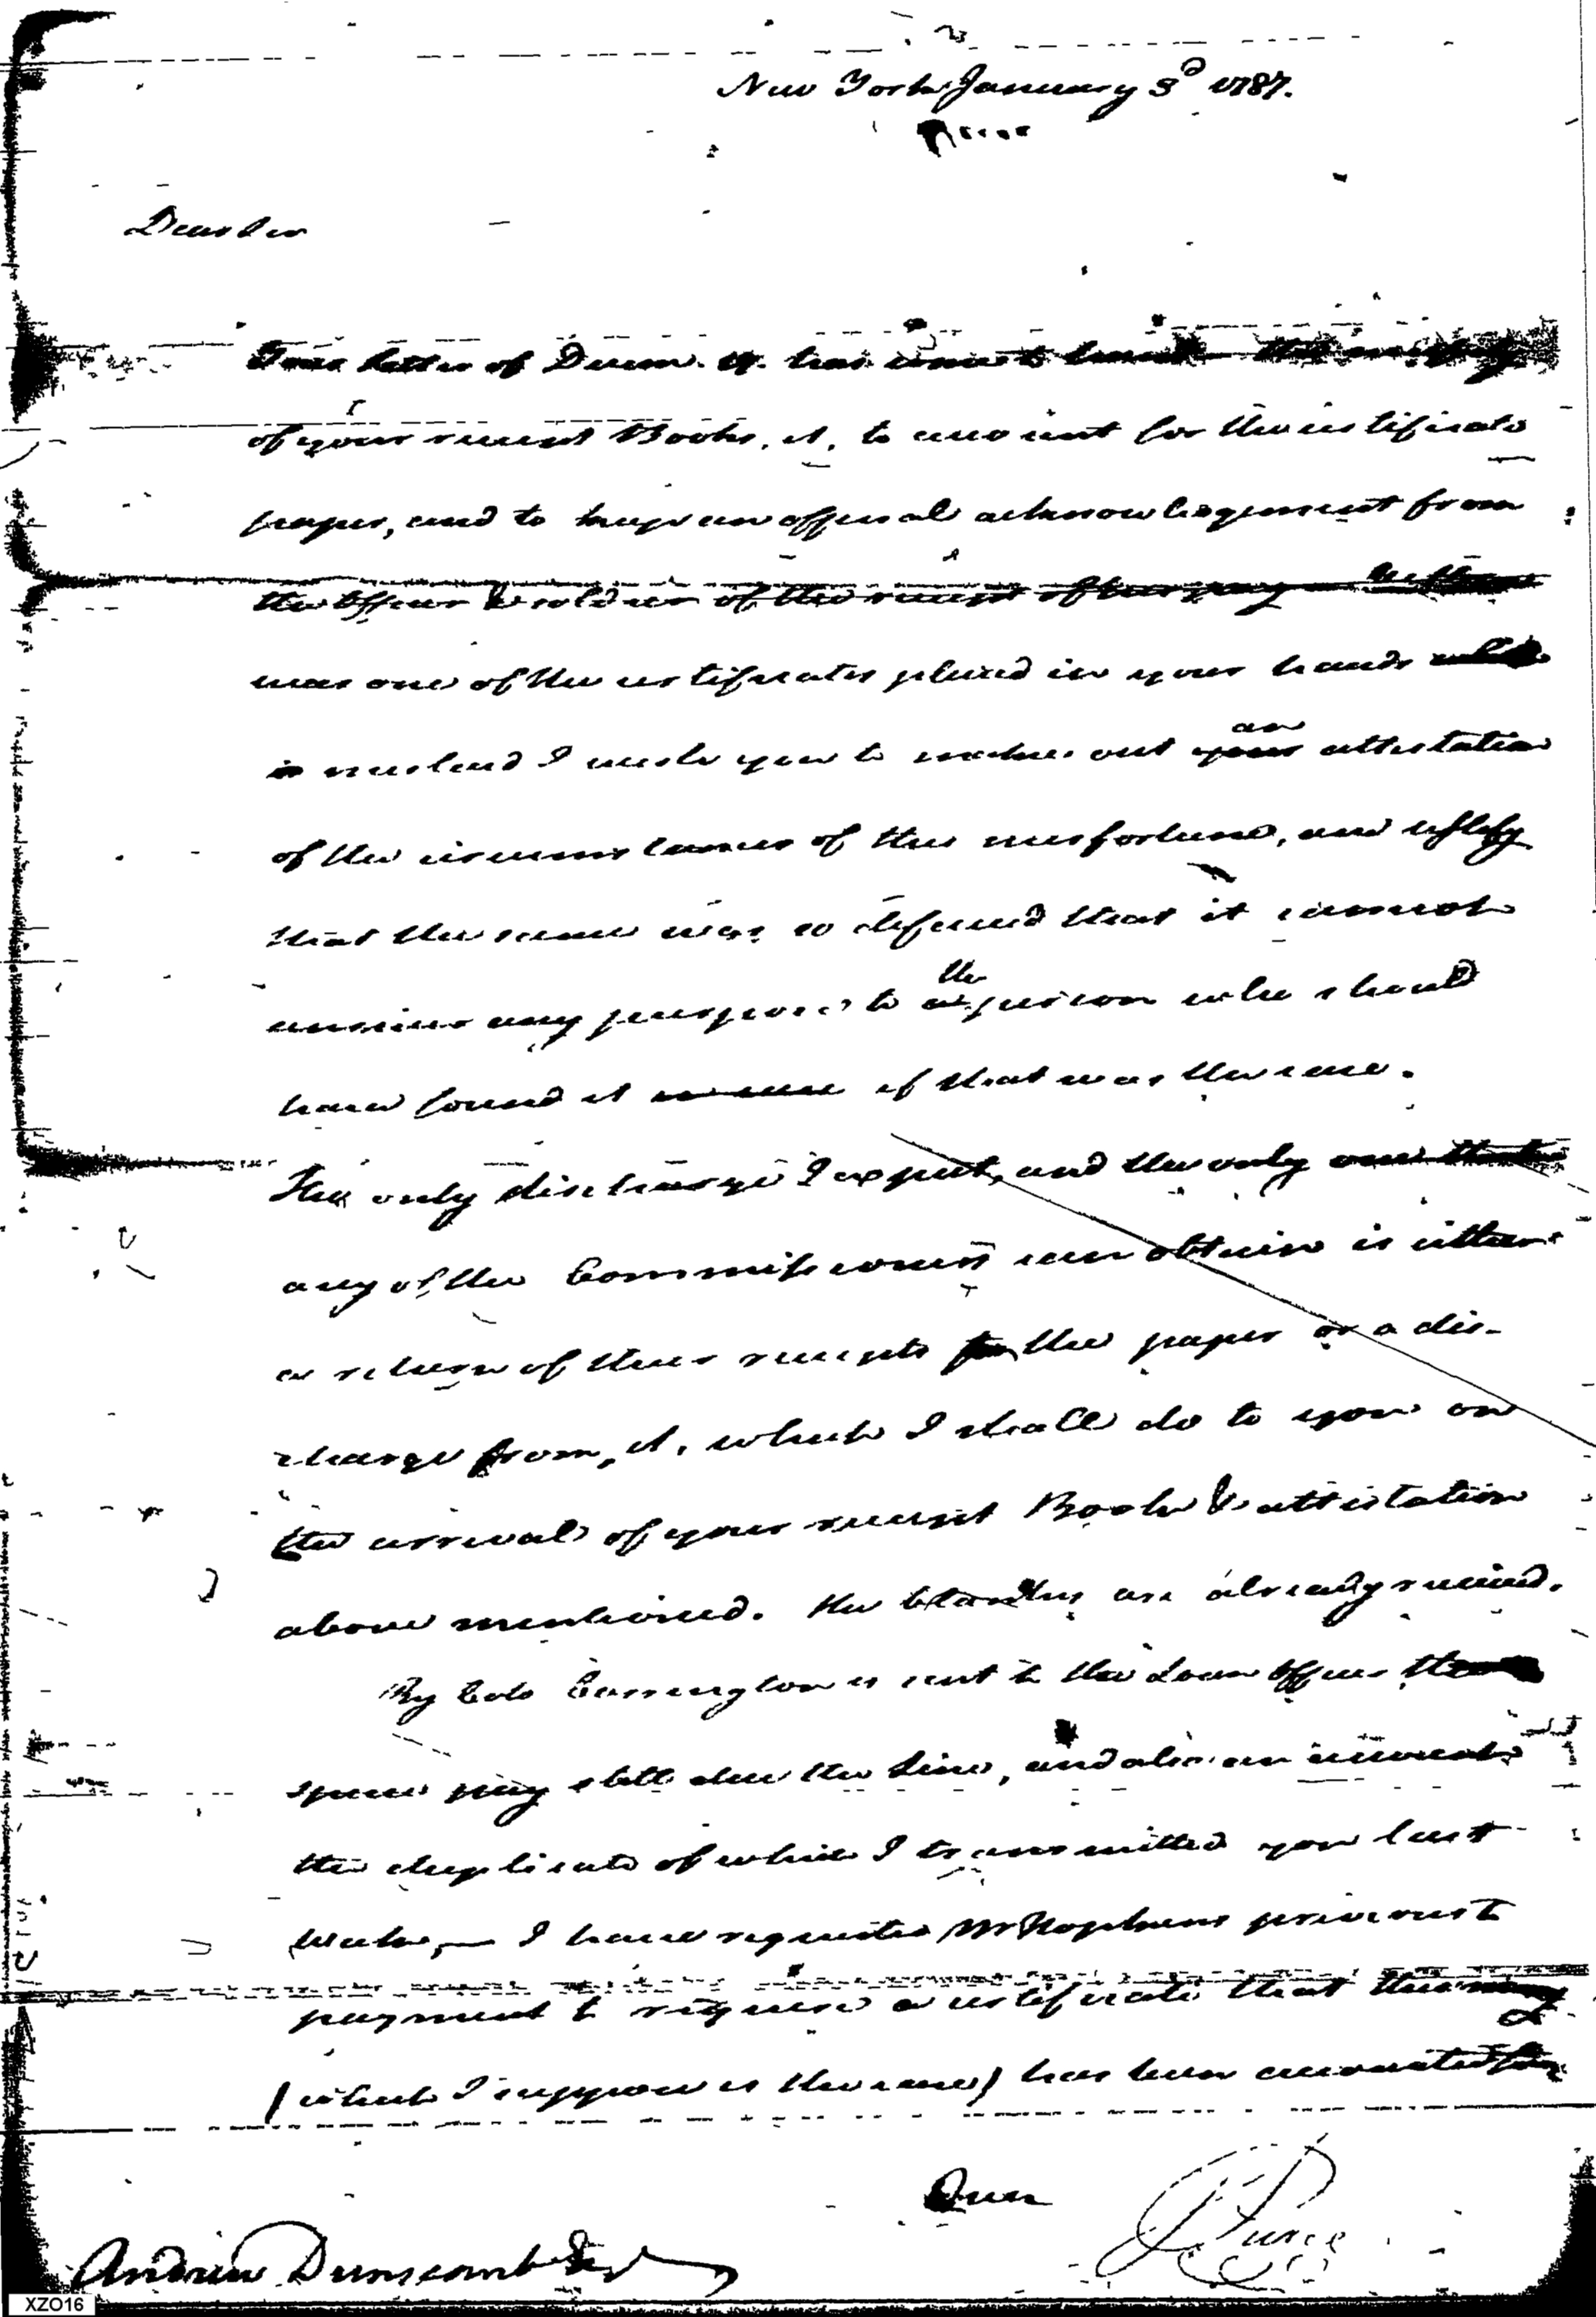 New York January 3d 1787.
Dear Sir
Your letter of Decem. 19. has come to hand
of your receipt Books, is, to account for the certificate
paper, and to keep an official acknowledgement from
the officer & soldier of the receipt of his pay
was one of the certificates placed in your hands
is mislaid I wish you to make out your an attestation
of the circumstances of this misfortune, and
that the same was so defaced that it cannot
answer any purpose to a the person who should
have found it if that was the case.
The only discharge I expect, and the only one that
any of the Commissioners can obtain is either
a return of their receipts for the paper or a dis-
charge from, it, which I shall do to you on
the arrival of your receipt Book & attestation
above mentioned. The blanks are already received.
By Colo Carrington is sent to the Loan officer the
specie pay still due the Line, and also an account
the duplicate of which I transmitted you last
Week,— I have requested Mr Hopkins previous to
payment to require a certificate that this
(which I suppose is the case) has been accounted for
Over
J Pierce
Andrew Dunscomb Esqr
XZO16